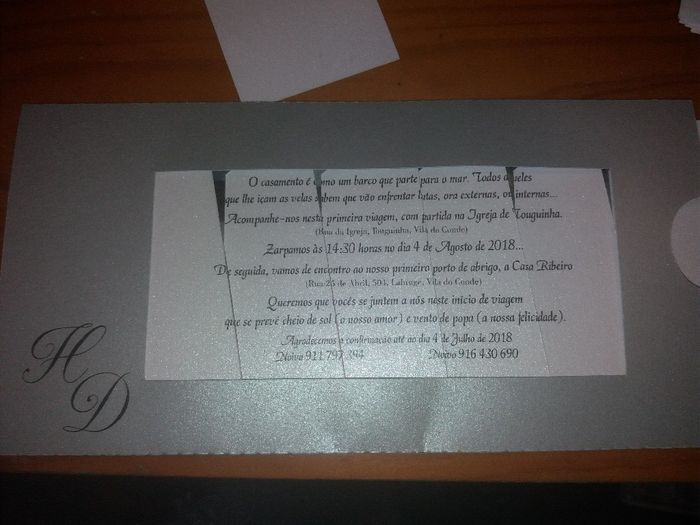 O casamento é como um barco que parte para o mar. Todos aqueles
que lhe içam as velas sabem que vão enfrentar lutas, ora externas, ou internas...
Acompanhe-nos nesta primeira viagem, com partida na Igreja de Touguinha.
(Rua da Igreja, Touguinha, Vila do Conde)
Zarpamos às 14:30 horas no dia 4 de Agosto de 2018...
De seguida, vamos de encontro ao nosso primeiro porto de abrigo, a Casa Ribeiro
(Rua 25 de Abril, 504, Labruge, Vila do Conde)
Queremos que vocês se juntem a nós neste início de viagem
que se prevê cheio de sol (o nosso amor) e vento de popa (a nossa felicidade).
Agradecemos a confirmação até ao dia 4 de Julho de 2018
Noiva 911 797 394 Noivo 916 430 690
H
D